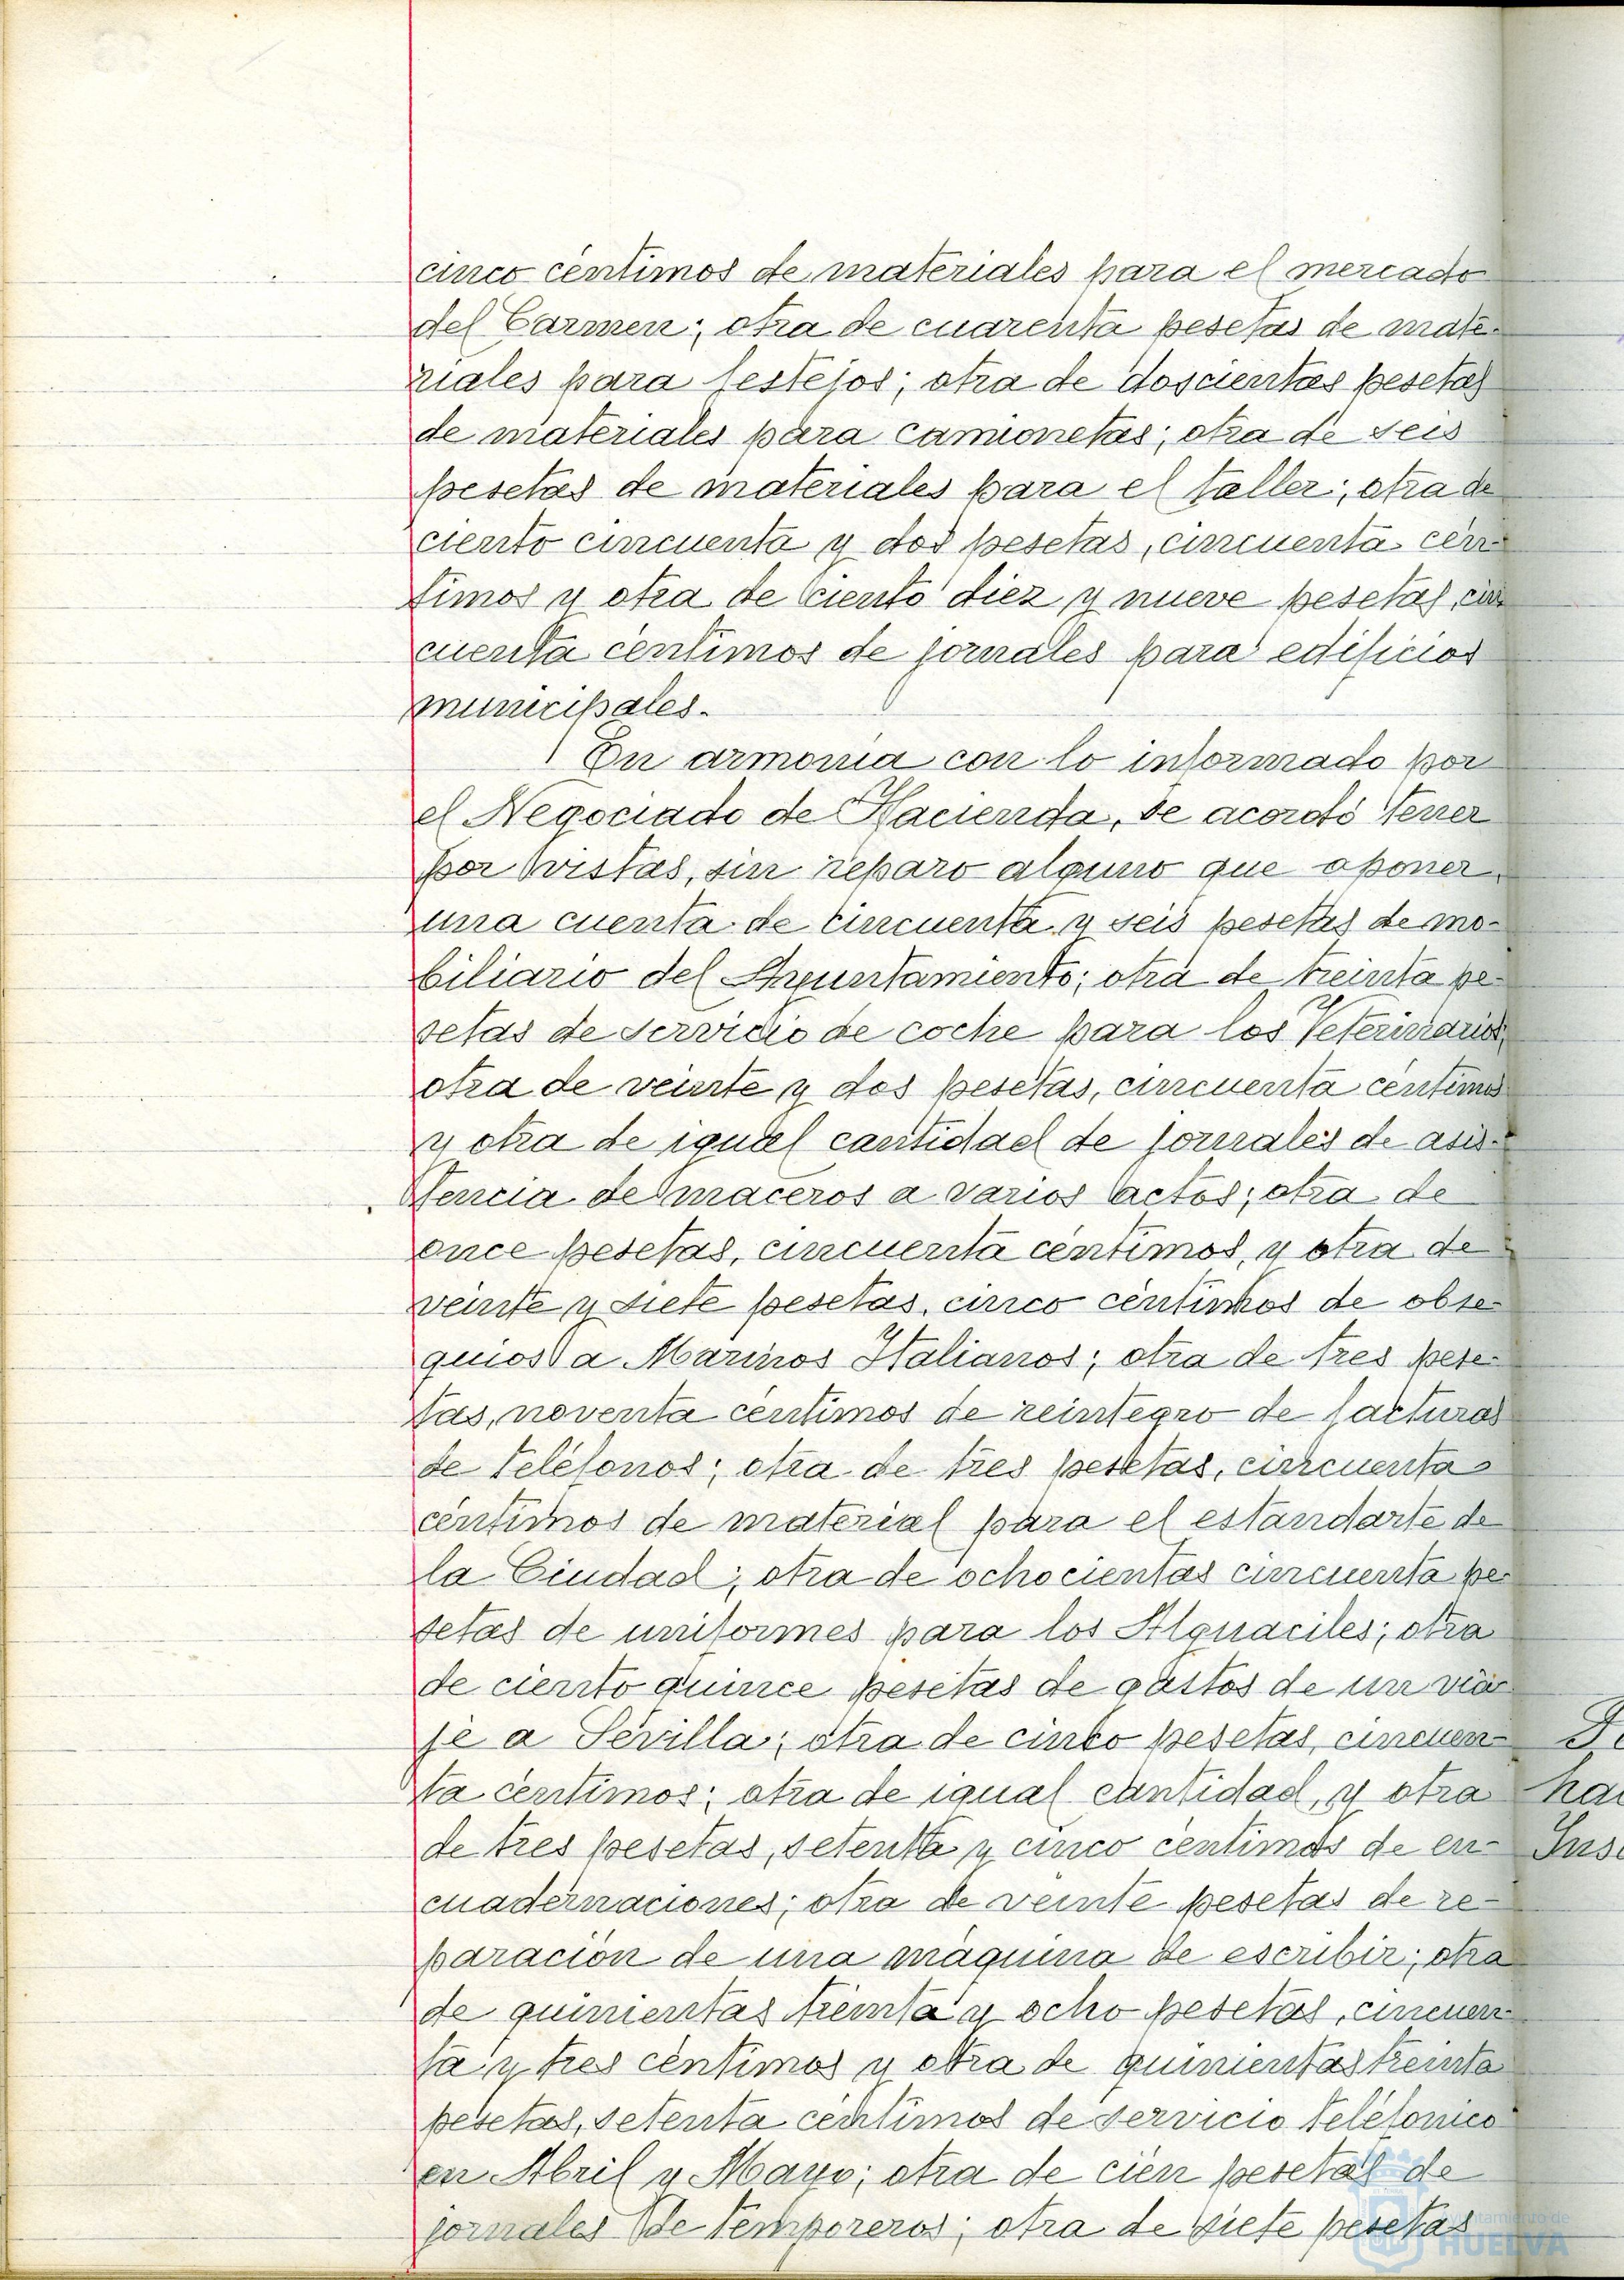 cinco céntimos de materiales para el mercado
del Carmen; otra de cuarenta pesetas de mate-
riales para festejos; otra de doscientas pesetas
de materiales para camionetas; otra de seis
pesetas de materiales para el taller; otra de
ciento cincuenta y dos pesetas, cincuenta cén-
timos y otra de ciento diez y nueve pesetas, cin-
cuenta céntimos de jornales para edificios
municipales.
En armonía con lo informado por
el Negociado de Hacienda, se acordó tener
por vistas, sin reparo alguno que oponer,
una cuenta de cincuenta y seis pesetas de mo-
biliario del Ayuntamiento; otra de treinta pe-
setas de servicio de coche para los Veterinarios;
otra de veinte y dos pesetas, cincuenta céntimos
y otra de igual cantidad de jornales de asis-
tencia de maceros a varios actos; otra de
once pesetas, cincuenta céntimos, y otra de
veinte y siete pesetas, cinco céntimos de obse-
quios a Marinos Italianos; otra de tres pese-
tas, noventa céntimos de reintegro de facturas
de Teléfonos; otra de tres pesetas, cincuenta
céntimos de material para el estandarte de
la Ciudad; otra de ochocientas cincuenta pe-
setas de uniformes para los Alguaciles; otra
de ciento quince pesetas de gastos de un via-
je a Sevilla; otra de cinco pesetas, cincuen-
ta céntimos; otra de igual cantidad, y otra
de tres pesetas, setenta y cinco céntimos de en-
cuadernaciones; otra de veinte pesetas de re-
paración de una máquina de escribir; otra
de quinientas treinta y ocho pesetas, cincuen-
ta y tres céntimos y otra de quinientas treinta
pesetas, setenta céntimos de servicio telefónico
en Abril y Mayo; otra de cien pesetas de
jornales de temporeros; otra de siete pesetas
Ayuntamiento de
HUELVA